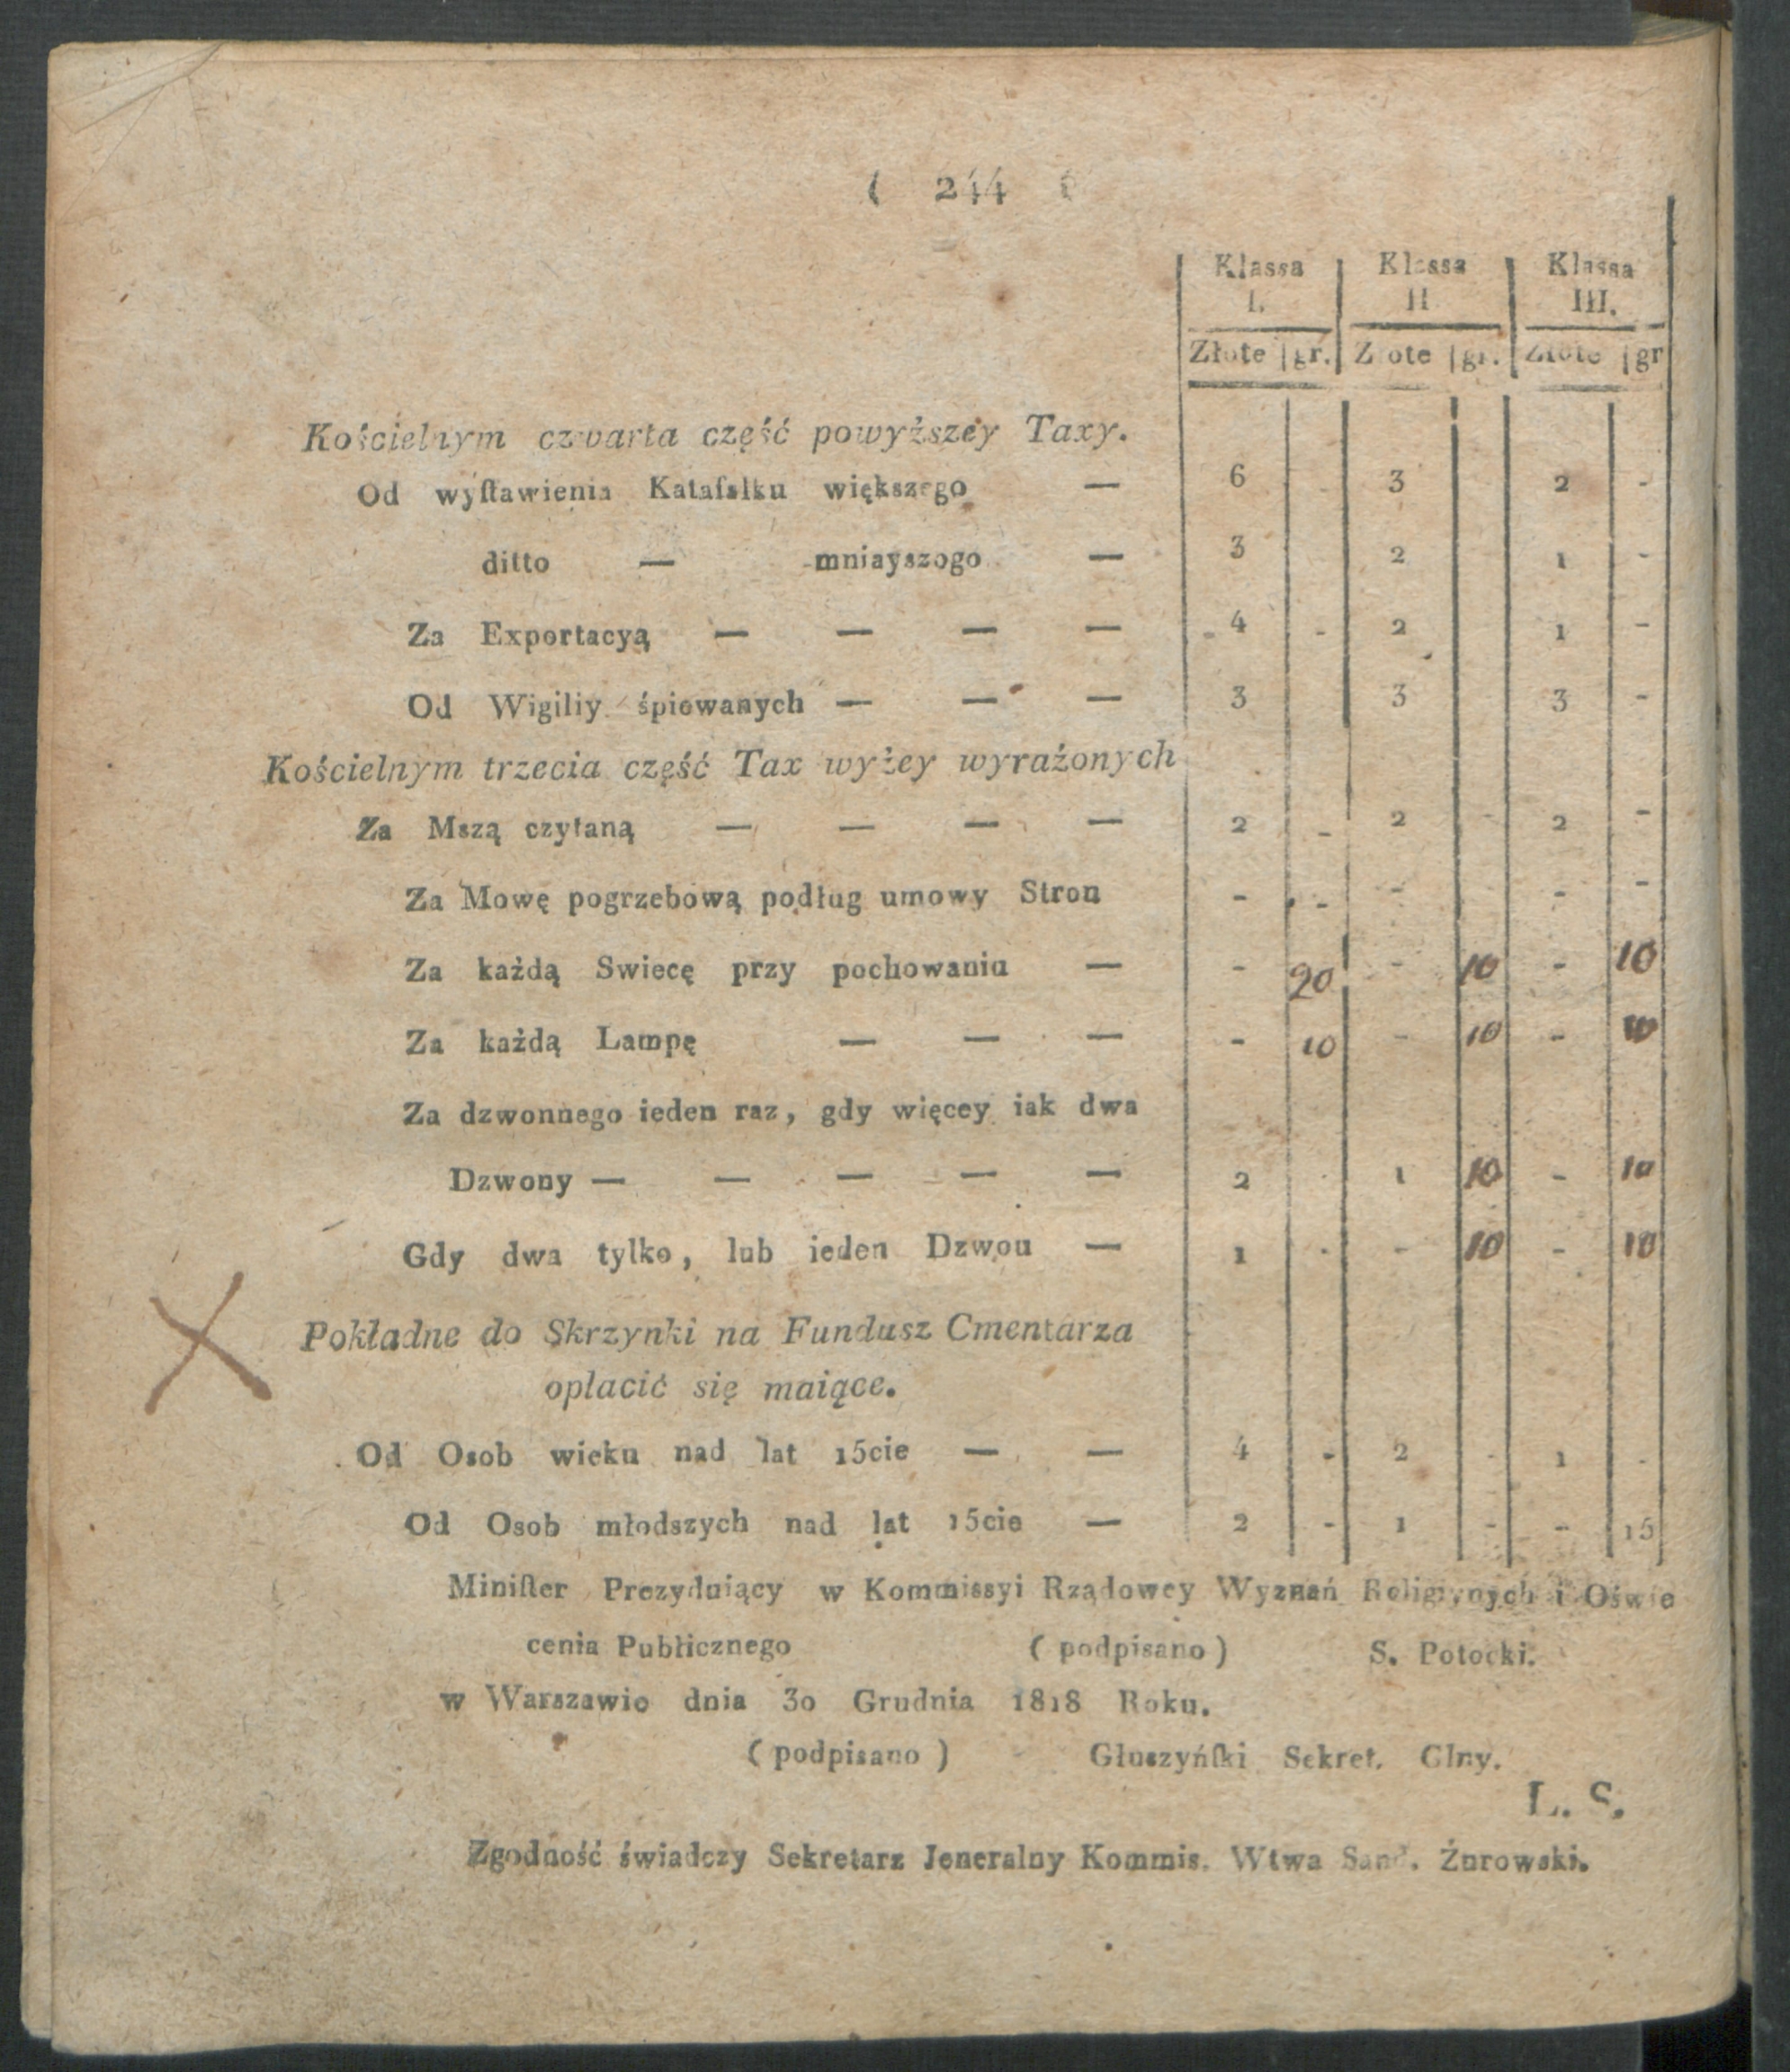 ( 244 )
Klassa I. Klassa II Klassa III.
Złote gr. Złote gr. Złote gr
Kościelnym czwarta część powyższey Taxy.
Od wyſtawienia Katafalku większego — 6 - 3 2 -
ditto — mniayszogo — 3 2 1 -
Za Exportacyą — — — — 4 - 2 1 -
Od Wigiliy śpiewanych — — — 3 3 3 -
Kościelnym trzecia część Tax wyżey wyrażonych
Za Mszą czytaną — — — — 2 - 2 - 2 -
Za Mowę pogrzebową podług umowy Stron - - - - -
Za każdą Swiecę przy pochowaniu — - 20 - 10 - 10
Za każdą Lampę — — — - 10 - 10 - 10
Za dzwonnego ieden raz, gdy więcey iak dwa
Dzwony — — — — — 2 - 1 10 - 10
Gdy dwa tylko, lub ieden Dzwon — 1 - - 10 - 10
Pokładne do Skrzynki na Fundusz Cmentarza
opłacić się maiące.
Od Osob wieku nad lat 15cie — — 4 - 2 - 1 -
Od Osob młodszych nad lat 15cie — 2 - 1 - - 15
Miniſter Prezyduiący w Kommissyi Rządowey Wyznań Religiynych i Oświe
cenia Publicznego ( podpisano ) S. Potocki.
w Warszawie dnia 30 Grudnia 1818 Roku.
( podpisano ) Głuszyńſki Sekret. Glny.
L. S.
Zgodność świadczy Sekretarz Jeneralny Kommis. Wtwa Sand. Żurowski.